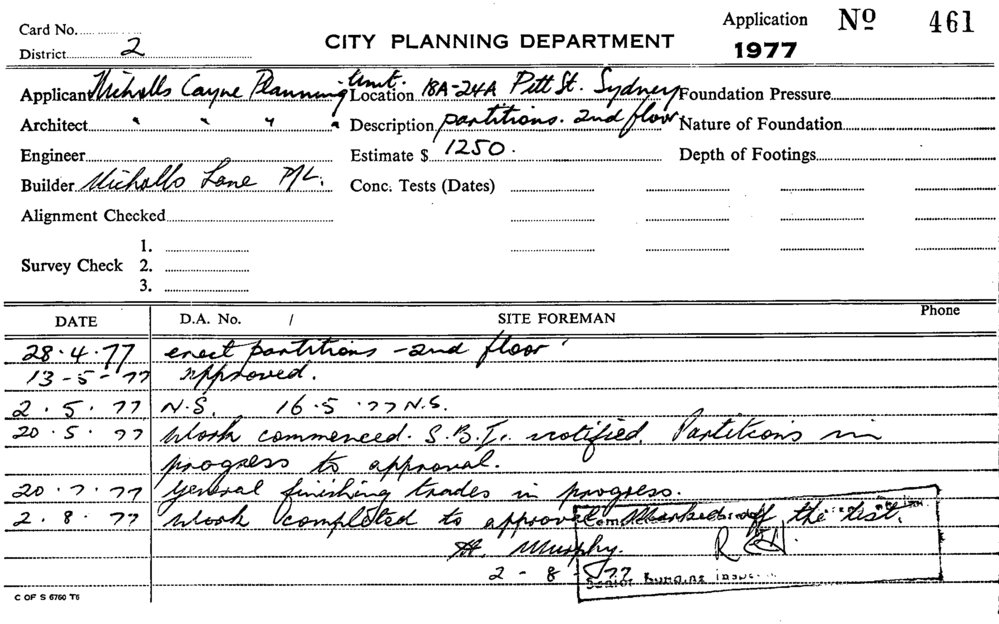 Card No.
District 2
CITY PLANNING DEPARTMENT
Application No 461
1977
Applicant Nicholls Cayne Planning Unit. Location 18A-24A Pitt St. Sydney Foundation Pressure
Architect " " " " Description partitions. 2nd floor Nature of Foundation
Engineer Estimate $ 1250. Depth of Footings
Builder Nicholls Lane P/L. Conc. Tests (Dates)
Alignment Checked
1.
Survey Check 2.
3.
DATE D.A. No. / SITE FOREMAN Phone
28.4.77 erect partitions - 2nd floor
13-5-77 approved.
2.5.77 N.S. 16.5.77 N.S.
20.5.77 Work commenced. S.B.I. notified. Partitions in
progress to approval.
20.7.77 General finishing trades in progress.
2.8.77 Work completed to approval. Marked off the list.
H. Murphy.
2-8-77
Senior Building
C OF S 6760 T6